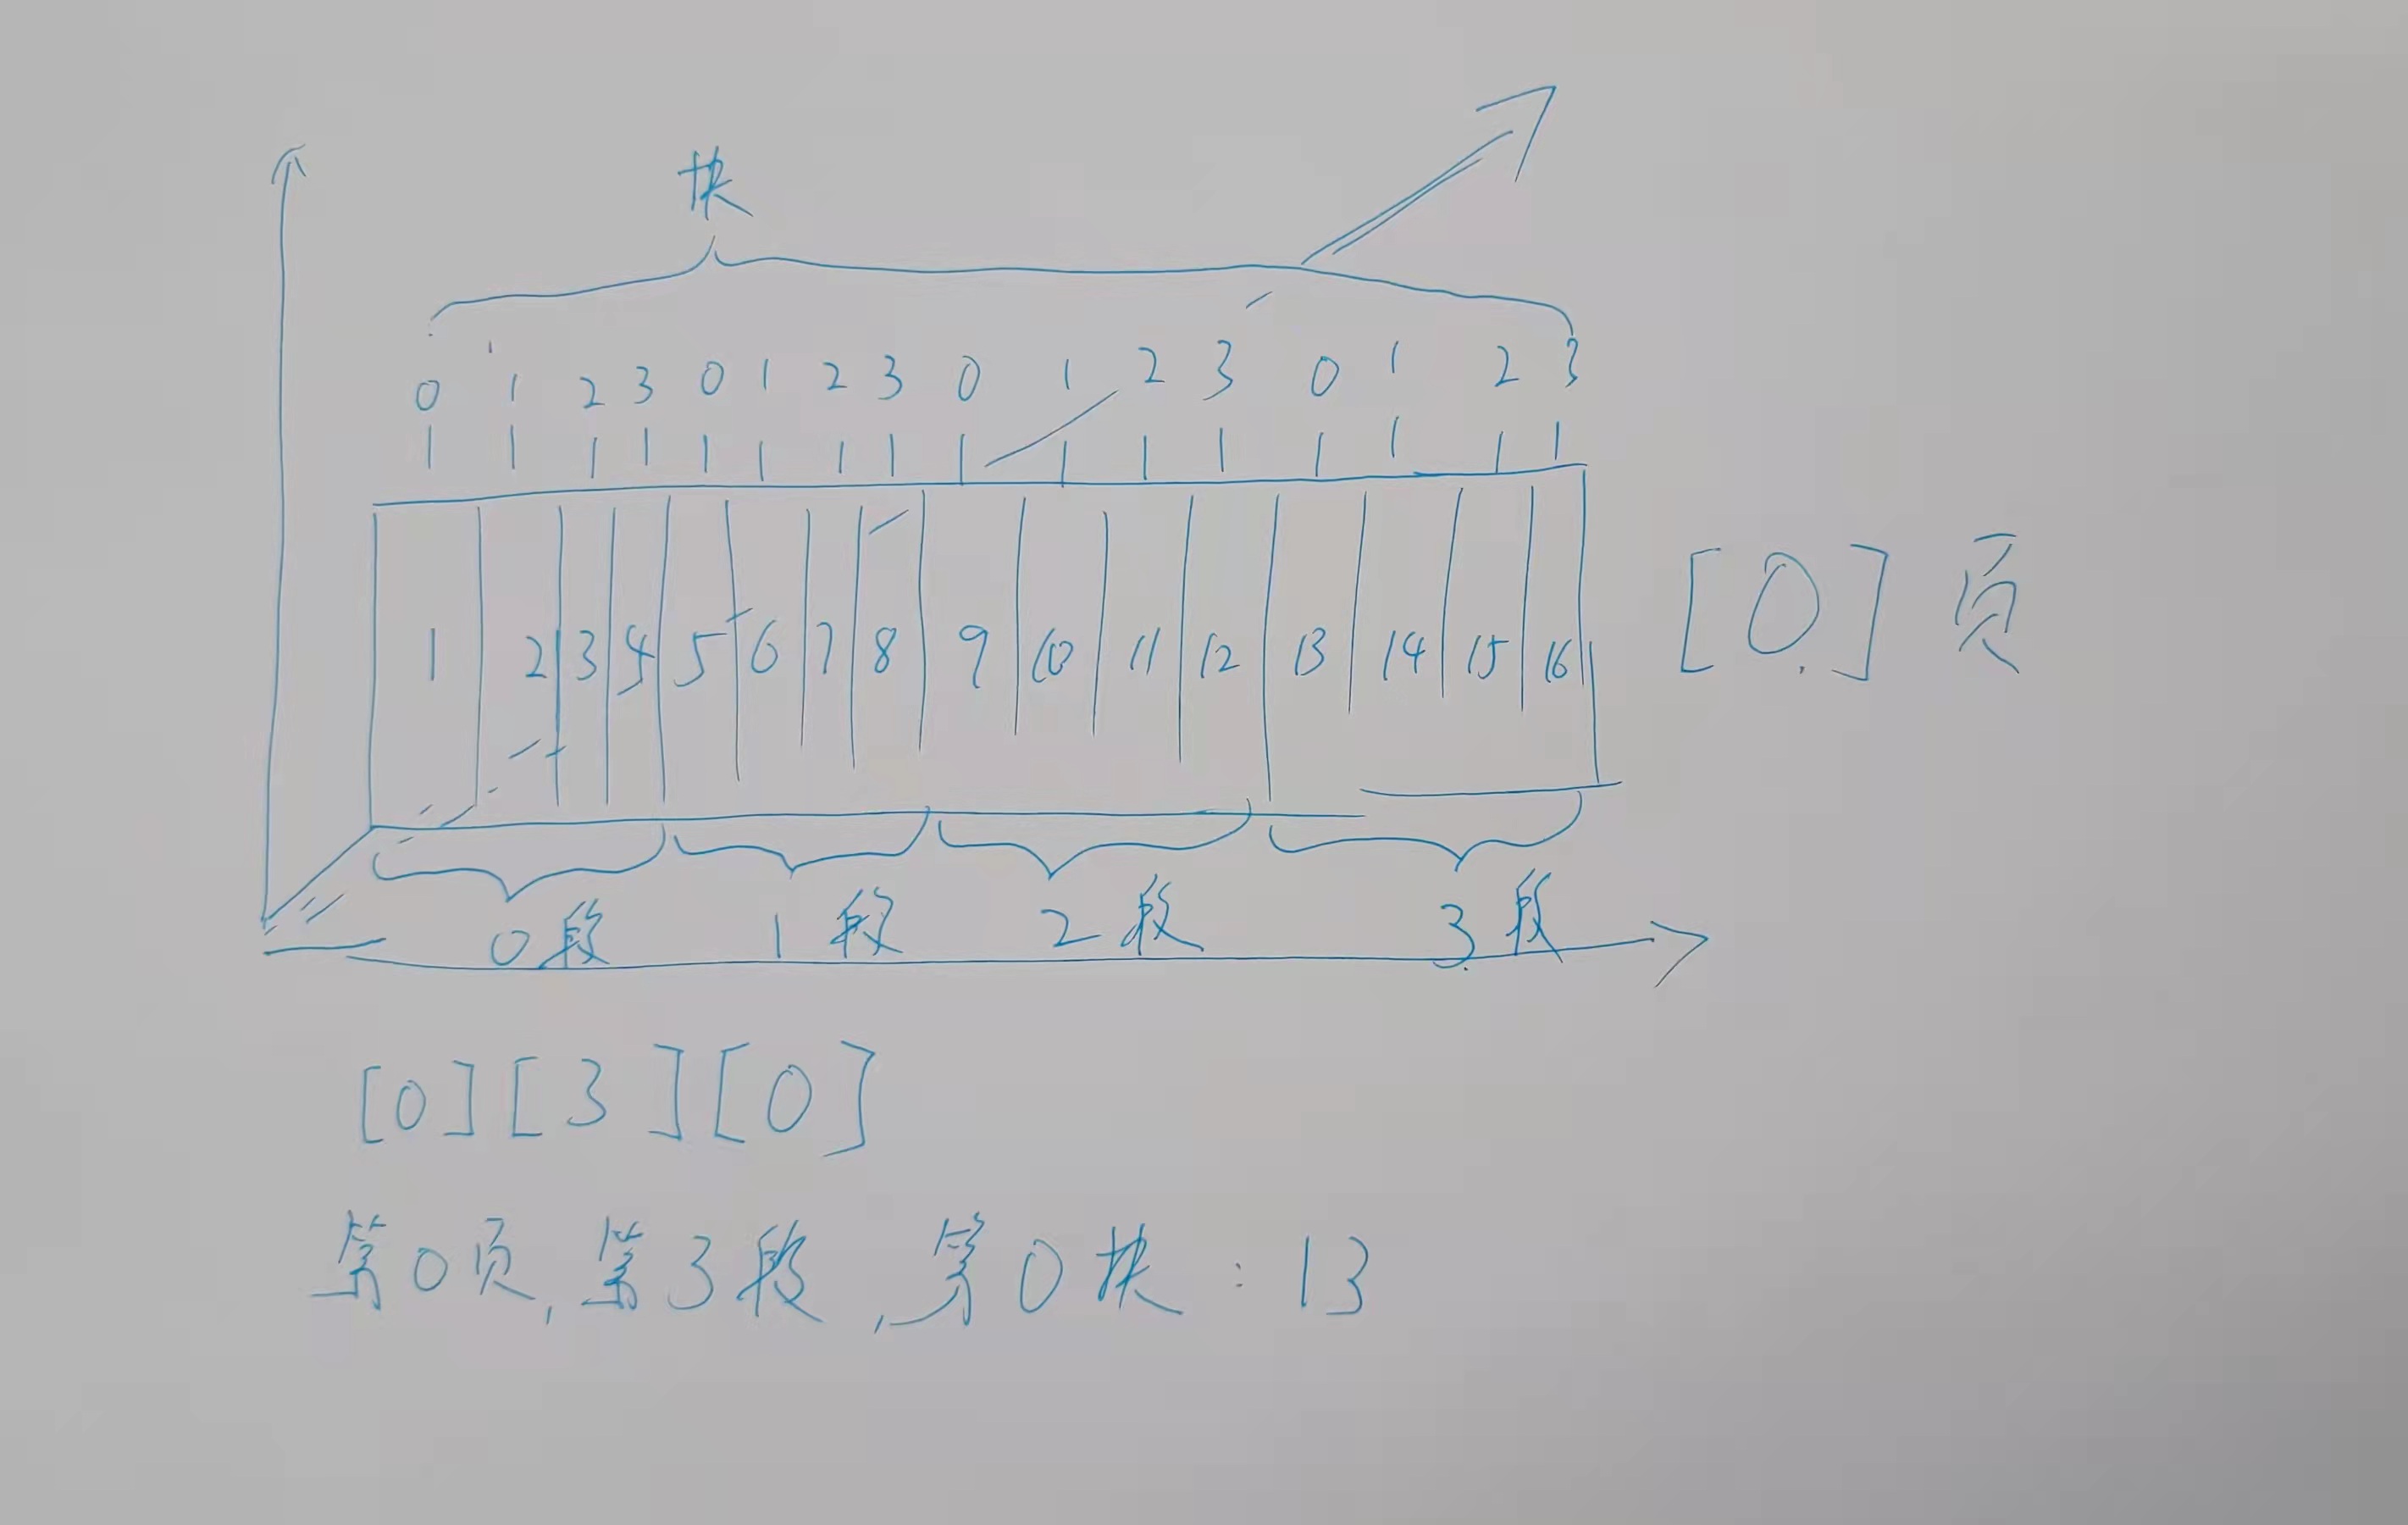 块
0 1 2 3 0 1 2 3 0 1 2 3 0 1 2 3
1 2 3 4 5 6 7 8 9 10 11 12 13 14 15 16
[0]页
0段 1段 2段 3段
[0][3][0]
第0页,第3段,第0块:13